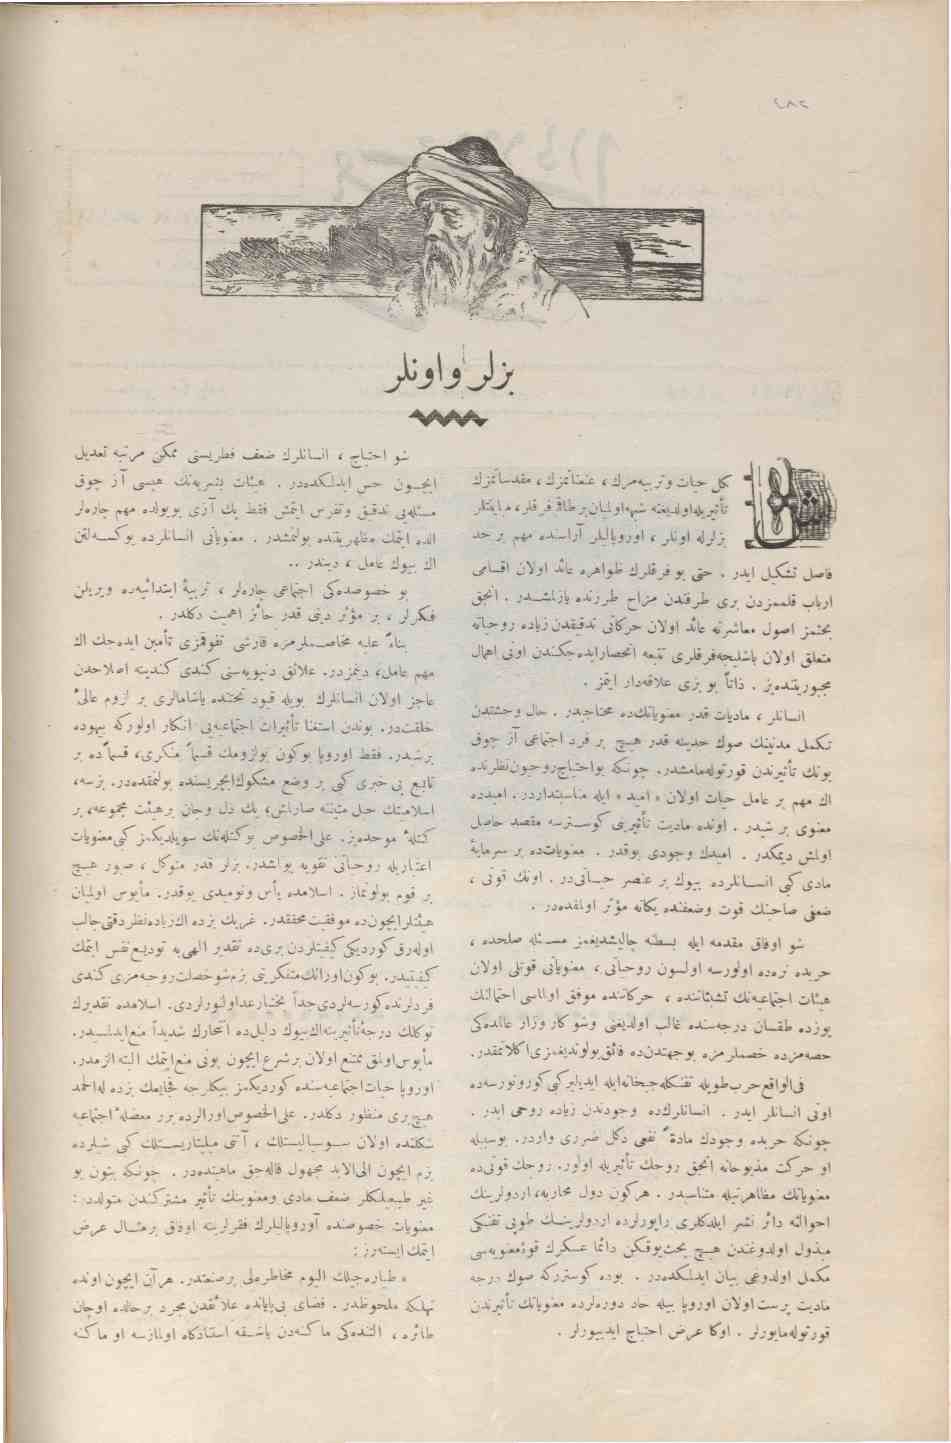 ٢٨٤
بزلر و اونلر
كل حيات وتربيه‌مزك ، عنعناتمزك ، مقدساتمزك
تأثيريله اولديغنه شبهه اولميان بر طاقم فرقلر ، مباينتلر
بزلرله اونلر ، اوروپاليلر آراسنده مهم بر حد
فاصل تشكيل ايدر . حتى بو فرقلرك ظواهره عائد اولان اقسامى
ارباب قلممزدن برى طرفندن مزاح طرزنده يازلمشدر . آنجق
بحثمز اصول معاشرته عائد اولان حركاتى تدقيقدن زياده روحياته
متعلق اولان باشليجه فرقلرى تتبعه انحصار ايده‌جكندن اونى اهمال
مجبوريتنده‌يز . ذاتاً بو بزى علاقه‌دار ايتمز .
انسانلر ، ماديات قدر معنوياتك‌ده محتاجيدر . حال وحشتدن
تكمل مدنينك صوك حدينه قدر هيچ بر فرد اجتماعى آز چوق
بونك تأثيرندن قورتوله‌مامشدر. چونكه بو احتياج روحيون نظرنده
اك مهم بر عامل حيات اولان « اميد » ايله مناسبتداردر. اميدده
معنوى بر شيدر . اونده ماديت تأثيرينى كوسترسه مقصد حاصل
اولمش ديمكدر . اميدك وجودى يوقدر . معنويات‌ده بر سرمايۀ
مادى كبى انسانلرده بيوك بر عنصر حياتى‌در . اونك قوتى ،
ضعفى صاحبنك قوت وضعفنده يكانه مؤثر اولمقده‌در .
شو اوفاق مقدمه ايله بسطنه چاليشديغمز مسئله صلحده ،
حربده نره‌ده اولورسه اولسون روحياتى ، معنوياتى قوتلى اولان
هيئات اجتماعيه‌نك تشبثاتنده ، حركاتنده موفق اولماسى احتمالنك
يوزده طقسان درجه‌سنده غالب اولديغنى وشو كارزار عالمده‌كى
حصه‌مزده خصملرمزه بو جهتدن‌ده فائق بولونديغمزى آكلاتمقدر.
فى‌الواقع حرب طوپله تفنكله جبخانه‌ايله ايديلير كبى كورونورسه‌ده
اونى انسانلر ايدر . انسانلرك‌ده وجودندن زياده روحى ايدر .
چونكه حربده وجودك مادةً نفعى دكل ضررى واردر. بوسبيله
او حركت مذبوحانه آنجق روحك تأثيريله اولور. روحك قوتى‌ده
معنوياتك مظاهرتيله متناسبدر . هركون دول محاربه، اردولرينك
احوالنه دائر نشر ايلدكلرى راپورلرده اردولرينك طوپى تفنكى
مبذول اولدوغندن هيچ بحث يوقكن دائما عسكرك قوۀ معنويه‌سى
مكمل اولدوغى بيان ايدلمكده‌در . بوده كوستررﻛﻪ صوك درجه
ماديت پرست اولان اوروپا بيله حاد دوره‌لرده معنوياتك تأثيرندن
قورتوله‌مايورلر . اوكا عرض احتياج ايدييورلر .
شو احتياج ، انسانلرك ضعف فطريسنى ممكن مرتبه تعديل
ايچون حس ايدلمكده‌در . هيئات بشريه‌نك هپسى آز چوق
مسئله‌يى تدقيق وتفرس ايتمش فقط پك آزى بويولده مهم چاره‌لر
الده ايتمك مظهريتنده بولنمشدر . معنوياتى انسانلرده يوكسه‌لتن
اك بيوك عامل ، ديندر ..
بو خصوصده‌كى اجتماعى چاره‌لر ، تربيۀ ابتدائيه‌ده ويريلن
فكرلر ، بر مؤثر دينى قدر حائز اهميت دكلدر .
بناءً عليه مخاصملرمزه قارشى تفوقمزى تأمين ايده‌جك اك
مهم عامل، دينمزدر. علائق دنيويه‌سنى كندى كندينه اصلاحدن
عاجز اولان انسانلرك بويله قيود تحتنده ياشامالرى بر لزوم عالئ
خلقت‌در. بوندن استغنا تأثيرات اجتماعيه‌يى انكار اولوركه بيهوده
برشيدر. فقط اوروپا بوكون بولزومك قسماً منكرى، قسماً ده بر
تابع بى خبرى كبى بر وضع مشكوك ايچريسنده بولنمقده‌در. بزسه،
اسلاميتك حبل متيننه صارلمش، يك دل وجان برهيئت مجموعه، بر
كتلۀ موحده‌يز. على الخصوص بو كتله‌نك سويلديكمز كبى معنويات
اعتباريله روحياتى تقويه بولمشدر. بزلر قدر متوكل ، صبور هيچ
بر قوم بولونماز . اسلامده يأس ونوميدى يوقدر. مأيوس اولميان
هيئتلر ايچون‌ده موفقيت محققدر. غربك بزده اك زياده نظر دقتى جالب
اوله‌رق كورديكى كيفيتلردن برى‌ده تقدير الهى‌يه توديع نفس ايتمك
كيفيتيدر. بوكون اورانك متفكرينى بزم شو خصلت روحيه‌مزى كندى
فردلرنده كورسه‌لردى جداً بختيار عد اولنورلردى. اسلامده تقديرك
توكلك درجۀ تأثيرينه اك بيوك دليل‌ده انتحارك شديداً منع ايدلمسيدر.
مأيوس اولمق ممتنع اولان برشرع ايچون بونى منع ايتمك البته الزمدر.
اوروپا حيات اجتماعيه‌سنده كورديكمز بيكلرجه فجايعك بزده له‌الحمد
هيچ برى منظور دكلدر. على الخصوص اورالرده برر معضلۀ اجتماعيه
شكلنده اولان سوسياليستلك ، آنتى ميليتاريستلك كبى شيلرده
بزم ايچون الى‌الابد مجهول قاله‌جق ماهيتده‌در . چونكه بتون بو
غير طبيعيلكلر ضعف مادى ومعنوينك تأثير مشتركندن متولددر :
معنويات خصوصنده آوروپاليلرك فقرلرينه اوفاق برمثال عرض
ايتمك ايسته‌رز :
« طياره‌جيلك اليوم مخاطره‌لى برصنعتدر. هرآن ايچون اونده
تهلكه ملحوظدر. فضاى بى‌پايانده علائقدن مجرد برحالده اوچان
طائره ، التنده‌كى ماكنه‌دن باشقه استنادكاه اولمازسه او ماكنه